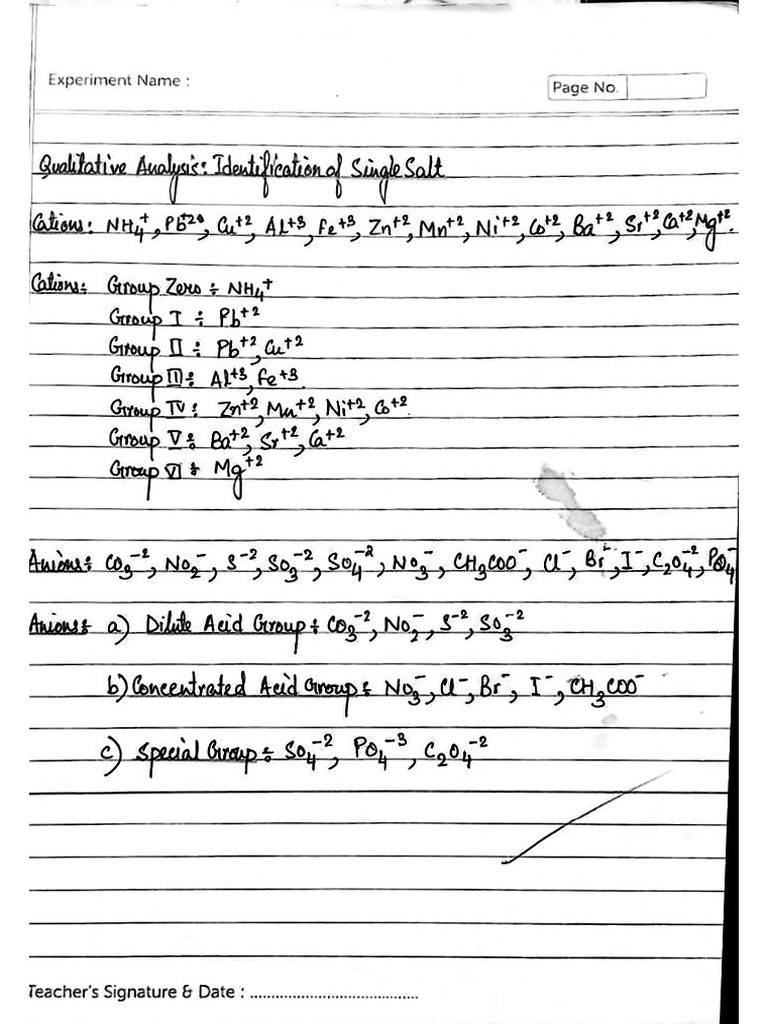 Experiment Name :
Page No.
Qualitative Analysis: Identification of Single Salt
Cations: NH₄⁺, Pb⁺², Cu⁺², Al⁺³, Fe⁺³, Zn⁺², Mn⁺², Ni⁺², Co⁺², Ba⁺², Sr⁺², Ca⁺², Mg⁺².
Cations: Group Zero ÷ NH₄⁺
Group I ÷ Pb⁺²
Group II ÷ Pb⁺², Cu⁺²
Group III: Al⁺³, Fe⁺³.
Group IV: Zn⁺², Mn⁺², Ni⁺², Co⁺².
Group V: Ba⁺², Sr⁺², Ca⁺²
Group VI: Mg⁺²
Anions: CO₃⁻², NO₂⁻, S⁻², SO₃⁻², SO₄⁻², NO₃⁻, CH₃COO⁻, Cl⁻, Br⁻, I⁻, C₂O₄⁻², PO₄⁻
Anions: a) Dilute Acid Group ÷ CO₃⁻², NO₂⁻, S⁻², SO₃⁻²
b) Concentrated Acid Group: NO₃⁻, Cl⁻, Br⁻, I⁻, CH₃COO⁻
c) Special Group ÷ SO₄⁻², PO₄⁻³, C₂O₄⁻²
Teacher's Signature & Date : .......................................